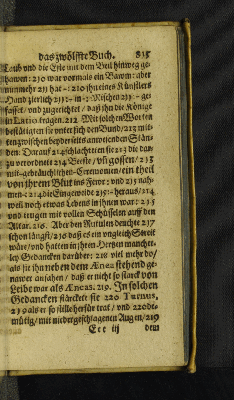 das zwölffte Buch. 835
Laub und die Este mit dem Beil hinweg ge-
hawen: 210 war vormals ein Baum: aber
nunmehr 211 hat -: 210 ihn eines Künstlers
Hand zierlich 211: - in -: Mischen 213: - ge-
fasset/ und zugerichtet/ daß ihn die Könige
in Latio tragen. 212 Mit solchen Worten
bestättigten sie unter sich den Bund/ 213 mit-
ten zwischen beyderseits anwesenden Stän-
den. Darauf 214 schlachteten sie 213 die dar-
zu verordnete 214 Beste/ uñ gossen/ 213
mit-gebräuchlichen-Ceremonien/ ein theil
von ihrem Blut ins Fewr: und 215 nah-
men -: 214 die Eingeweide 215: - heraus/ 214
weil noch etwas Lebens in ihnen war: 215
und trugen mit vollen Schüsseln auff den
Altar. 216. Aber den Rutulen deuchte 217
schon längst/ 216 daß es ein ungleich Streit
wäre/ und hatten in ihren Hertzen mancher-
ley Gedancken darüber: 218 viel mehr da/
als sie ihn neben dem Ænea stehend ge-
nawer ansahen/ daß er nicht so starck von
Leibe war als Æneas. 219. In solchen
Gedancken stärckete sie 220 Turnus,
219 als er so stille herfür trat/ und 220 de-
mütig/ mit niedergeschlagenen Augen/ 219
Eee iij dem